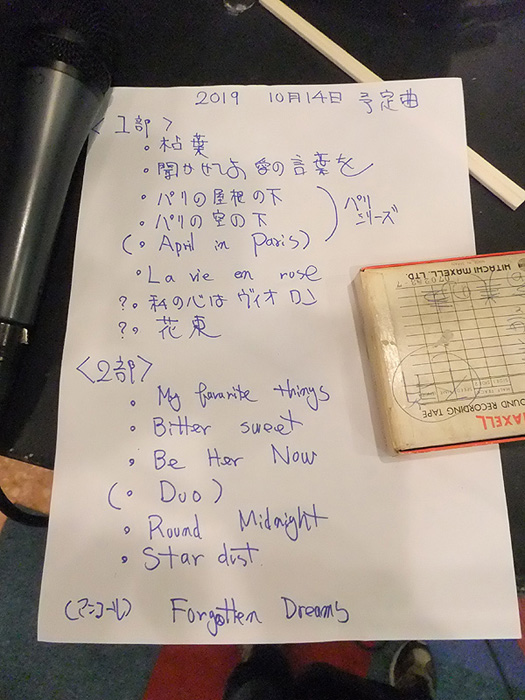 2019 10月14日 予定曲
<1部>
・枯葉
・聞かせてよ愛の言葉を
・パリの屋根の下
・パリの空の下
(・April in paris)
パリ
シリーズ
・La vie en rose
?・私の心はヴィオロン
?・花束
<2部>
・My favarite things
・Bitter sweet
・Be Her Now
(・Duo)
・Round Midnight
・Star dust
(アンコール) Forgotten Dreams
HITACHI MAXELL, LTD
SOUND RECORDING TAPE
MAXELL